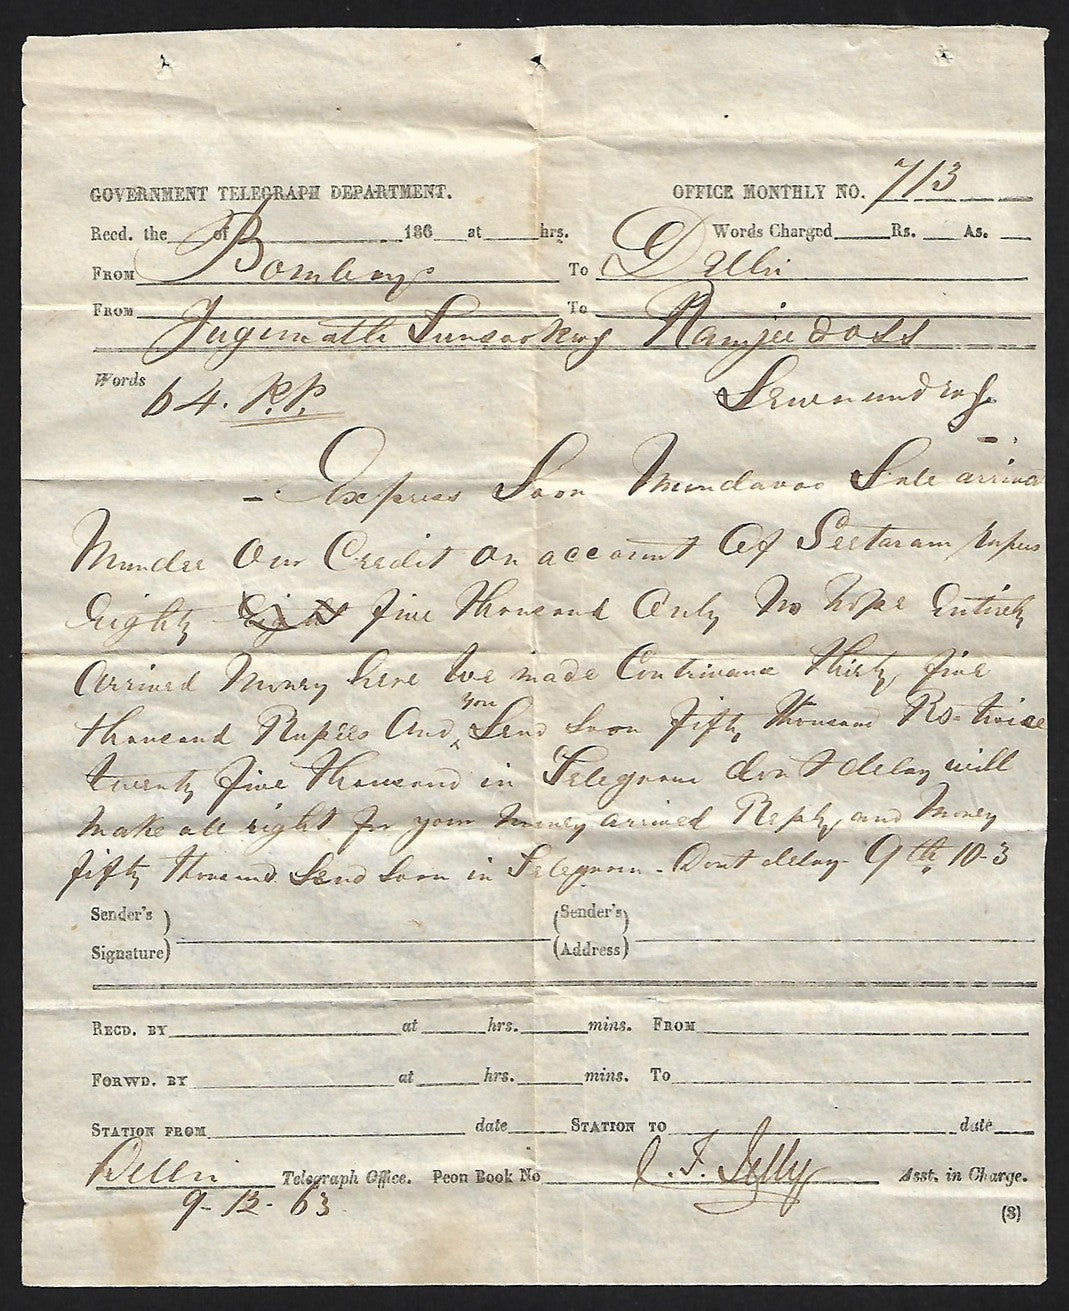 GOVERNMENT TELEGRAPH DEPARTMENT. OFFICE MONTHLY NO. 713
Recd. the of 186 at hrs. Words Charged Rs. As.
FROM Bombay To Delhi
FROM To
Jugernath Ramjeedoss
Words 64. R.P.
Express Soon Sale arrived
Mundee Our Credit on account Of Seetaram rupees
Eighty Eight five thousand Only No hope Entirely
arrived Money here We made Contrivance thirty five
thousand Rupees And you Send soon fifty thousand Rs. twice
twenty five thousand in Telegram don't delay will
make all right for your money arrived Reply and Money
fifty thousand Send soon in Telegram. Dont delay 9th 10-3
Sender's Signature) (Sender's Address)
RECD. BY at hrs. mins. FROM
FORWD. BY at hrs. mins. To
STATION FROM date STATION TO date
Delhi Telegraph Office. Peon Book No Asst. in Charge.
9-12-63
(3)